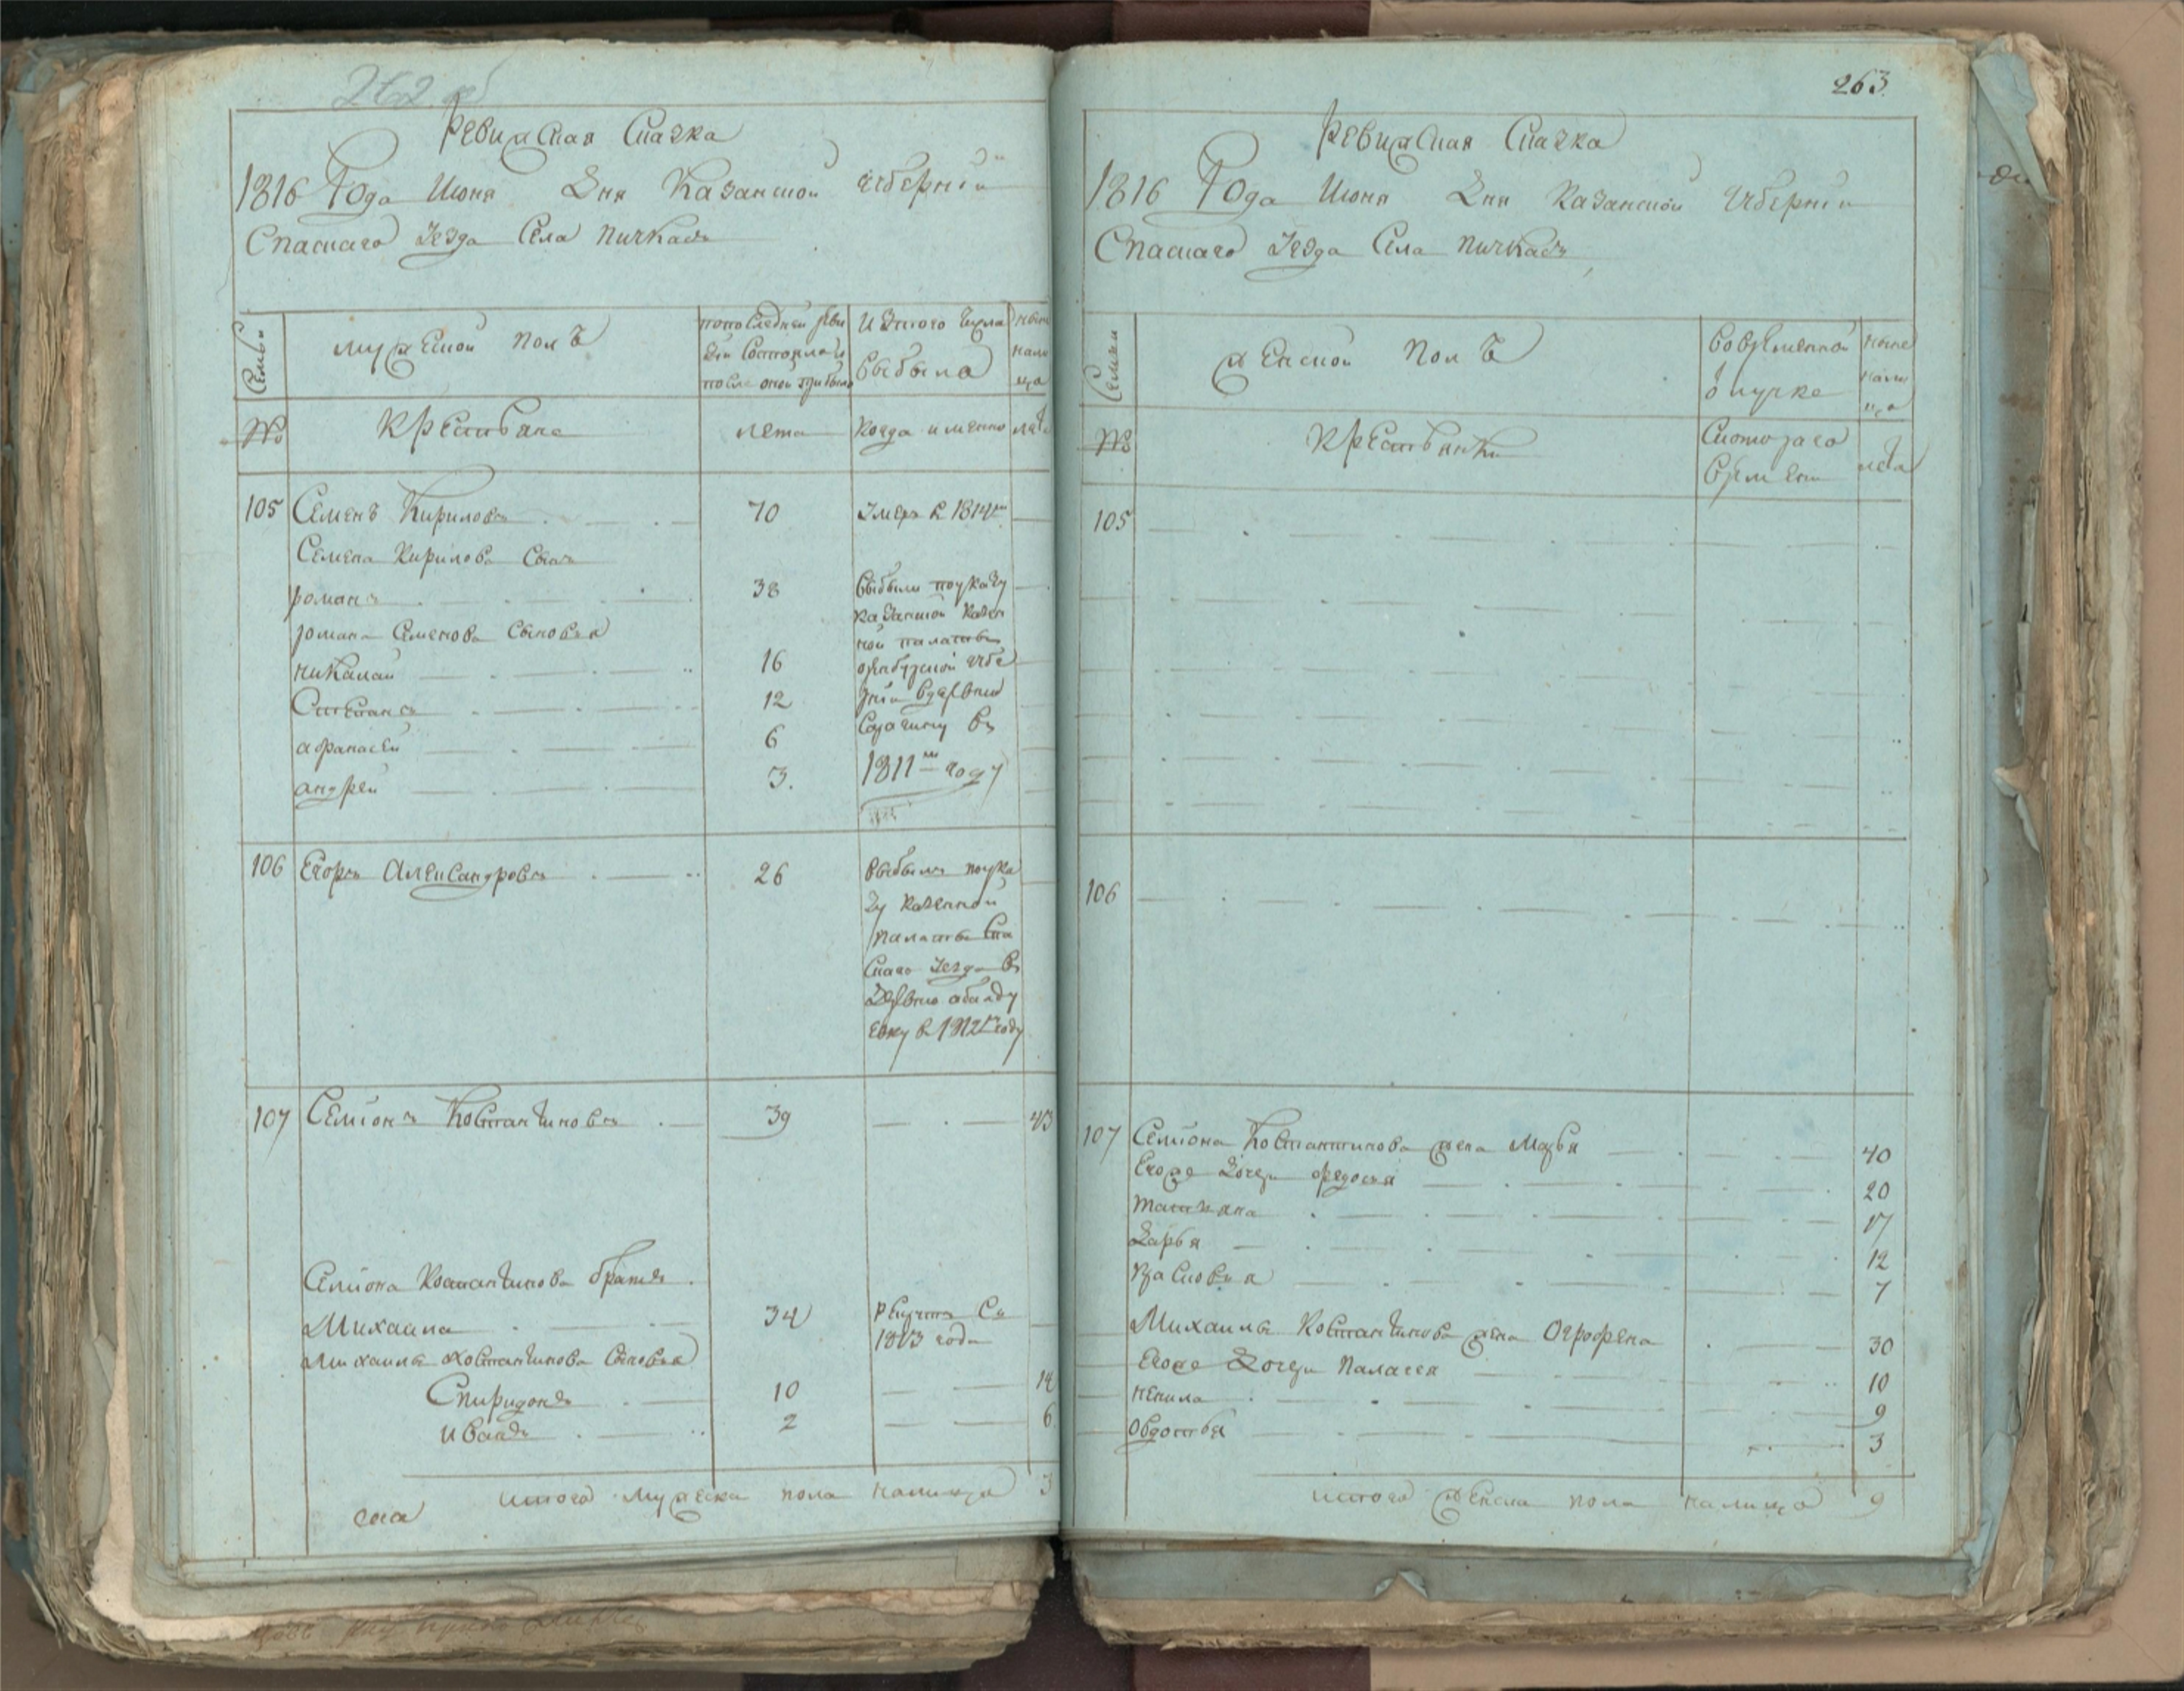 262 об
Ревижская Сказка
1816 Года Июня Дня Казанской Губернии
Спаскаго Уезда Села Пичкасъ
Семьи
мужеской полЪ
попоследней реви
зіи Состояло и
после оной прибыло
Изтого Числа
Выбыло
ныне
нали
ца
№
Крестьяне
лета
Когда имянно
лѣта
105
Семенъ Кириловъ
70
Умеръ в 1814м
Семена Кирилова Сынъ
романъ
38
выбыли поуказу
казанской казен
ной палаты
оренбурской губе
рніи в деревню
в
1811м году
романа Семенова Сыновья
николай
16
Степанъ
12
афанасей
6
андрей
3.
106
Егоръ Александровъ
26
Выбылъ поука
зу казенной
палаты Спа
скаго уезда въ
деревню
в 1812м году
107
Семіонъ Костантиновъ
39
43
Семіона Костантинова братъ
Михаила
34
рекрутъ Съ
1813 года
Михаила Костантинова Сыновья
Спиридонъ
10
14
Иванъ
2
6
итого мужеска пола налицо 3
263.
Ревижская Сказка
1816 Года Июня Дня Казанской Губерніи
Спаскаго Уезда Села Пичкасъ
Семьи
женской ПолЪ
Вовременной
отлучке
ныне
нали
ца
№
Крестьянки
Скотораго
времени
лѣта
105
106
107
Семіона Костантинова жена Марья
40
Егоже дочери федосья
20
татьяна
17
дарья
12
Прасковья
7
Михаила Костантинова жена Огрофена
30
Егоже дочери Палагея
10
ненила
9
Овдотья
3
итого женска пола налицо 9